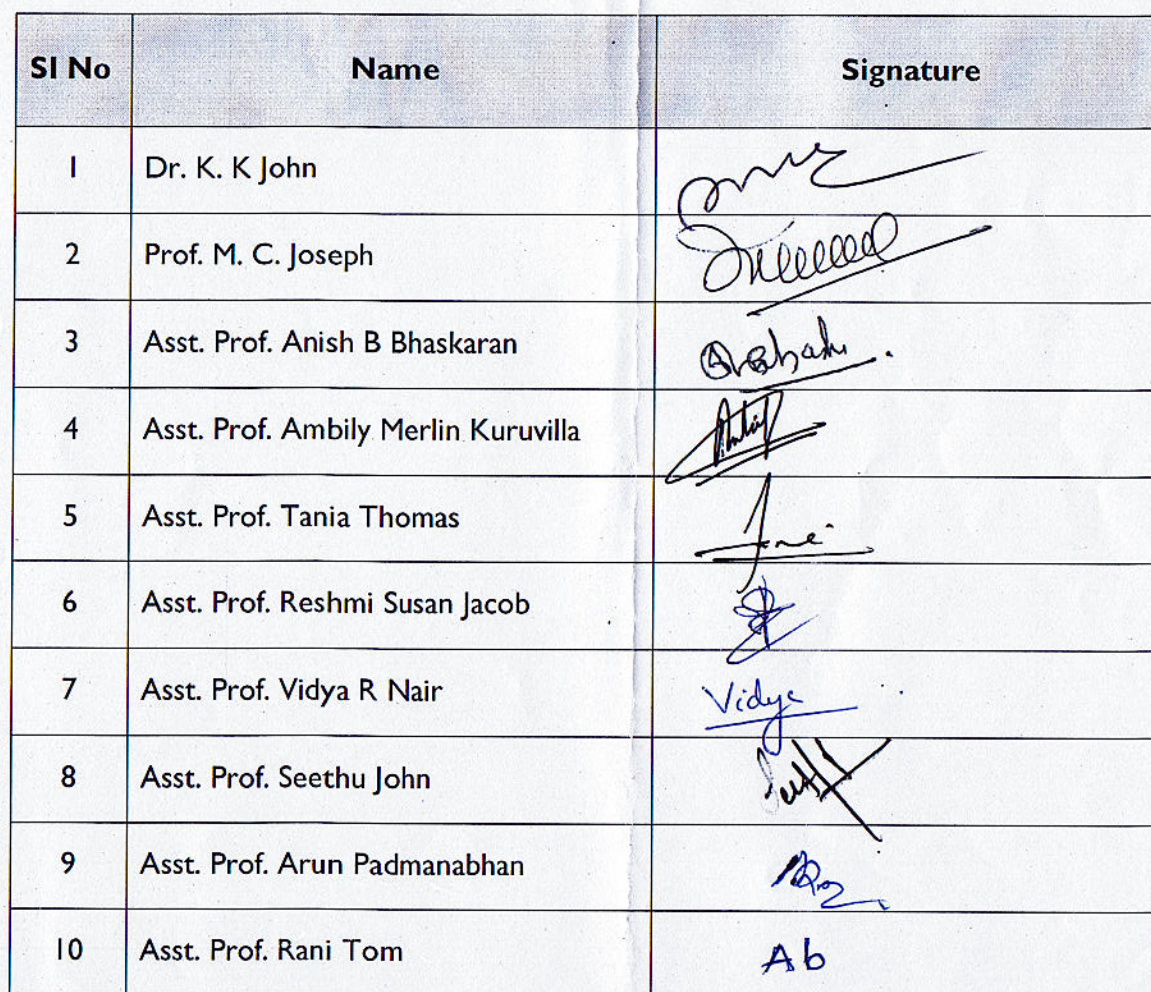 SI No Name Signature
1 Dr. K. K John
2 Prof. M. C. Joseph
3 Asst. Prof. Anish B Bhaskaran
4 Asst. Prof. Ambily Merlin Kuruvilla
5 Asst. Prof. Tania Thomas
6 Asst. Prof. Reshmi Susan Jacob
7 Asst. Prof. Vidya R Nair Vidya
8 Asst. Prof. Seethu John
9 Asst. Prof. Arun Padmanabhan
10 Asst. Prof. Rani Tom Ab